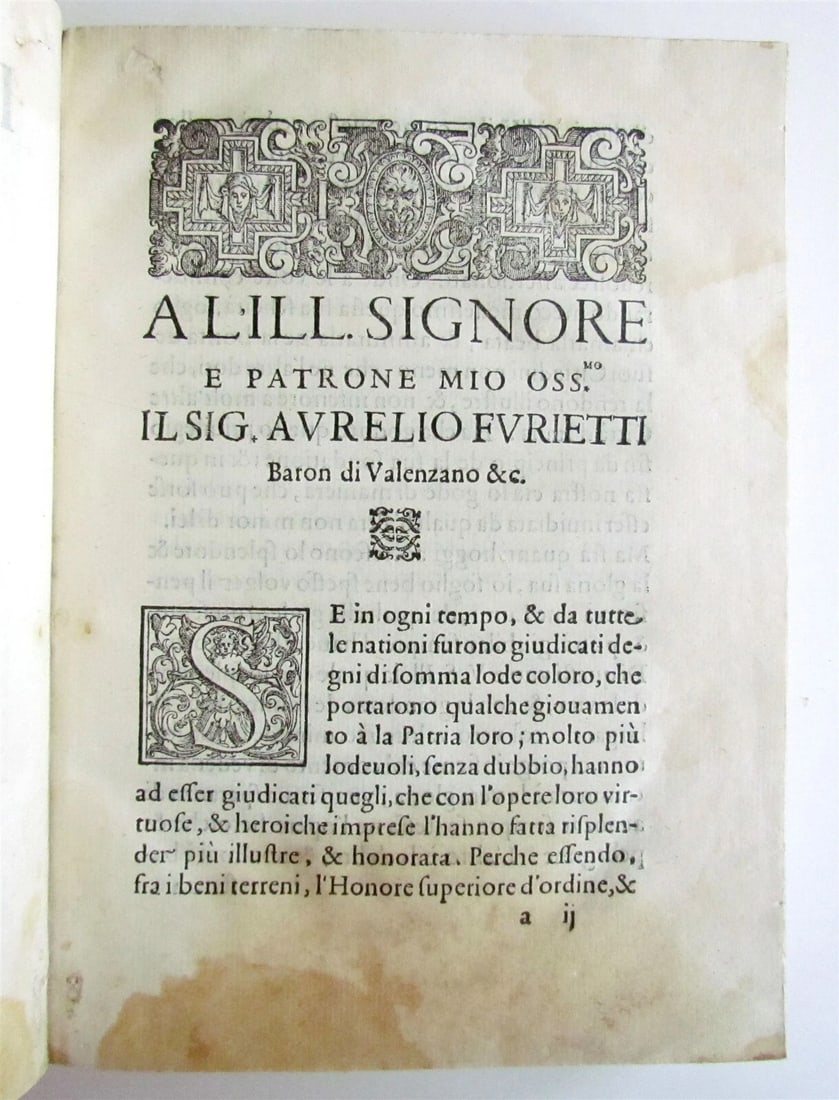 A L'ILL. SIGNORE
E PATRONE MIO OSS.MO
IL SIG. AVRELIO FVRIETTI
Baron di Valenzano &c.
SE in ogni tempo, & da tutte
le nationi furono giudicati de-
gni di ſomma lode coloro, che
portarono qualche giouamen
to à la Patria loro; molto più
lodeuoli, ſenza dubbio, hanno
ad eſſer giudicati quegli, che con l'opere loro vir-
tuoſe, & heroiche impreſe l'hanno fatta riſplen-
der più illuſtre, & honorata. Perche eſſendo,
fra i beni terreni, l'Honore ſuperiore d'ordine, &
a ij